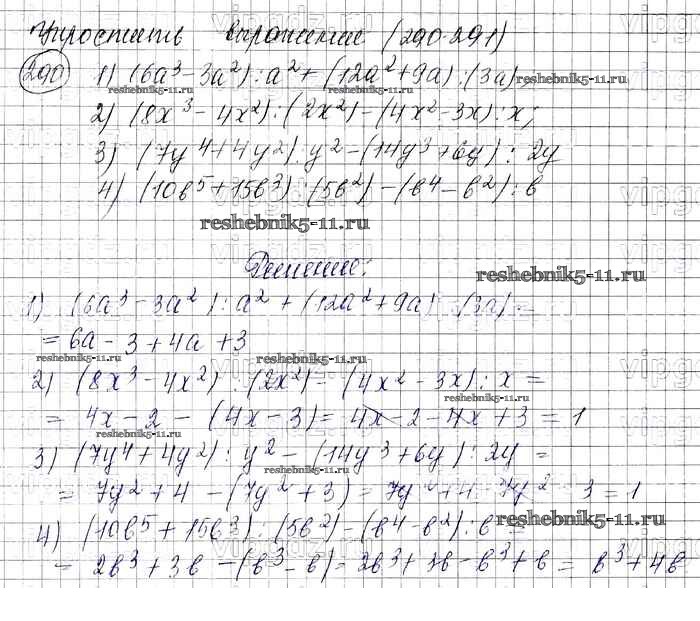 Упростить выражение (290-291)
290 1) (6a³-3a²):a²+(12a²+9a):(3a);
reshebnik5-11.ru reshebnik5-11.ru
2) (8x³-4x²):(2x²)-(4x²-3x):x;
3) (7y⁴+4y²):y²-(14y³+6y):2y
4) (10b⁵+15b³):(5b²)-(b⁴-b²):b
reshebnik5-11.ru
Решение:
reshebnik5-11.ru
1) (6a³-3a²):a²+(12a²+9a):(3a)=
=6a-3+4a+3
reshebnik5-11.ru reshebnik5-11.ru
2) (8x³-4x²):(2x²)-(4x²-3x):x=
reshebnik5-11.ru
=4x-2-(4x-3)=4x-2-4x+3=1
reshebnik5-11.ru
3) (7y⁴+4y²):y²-(14y³+6y):2y=
reshebnik5-11.ru
=7y²+4-(7y²+3)=7y²+4-7y²-3=1
reshebnik5-11.ru
4) (10b⁵+15b³):(5b²)-(b⁴-b²):b=
=2b³+3b-(b³-b)=2b³+3b-b³+b=b³+4b